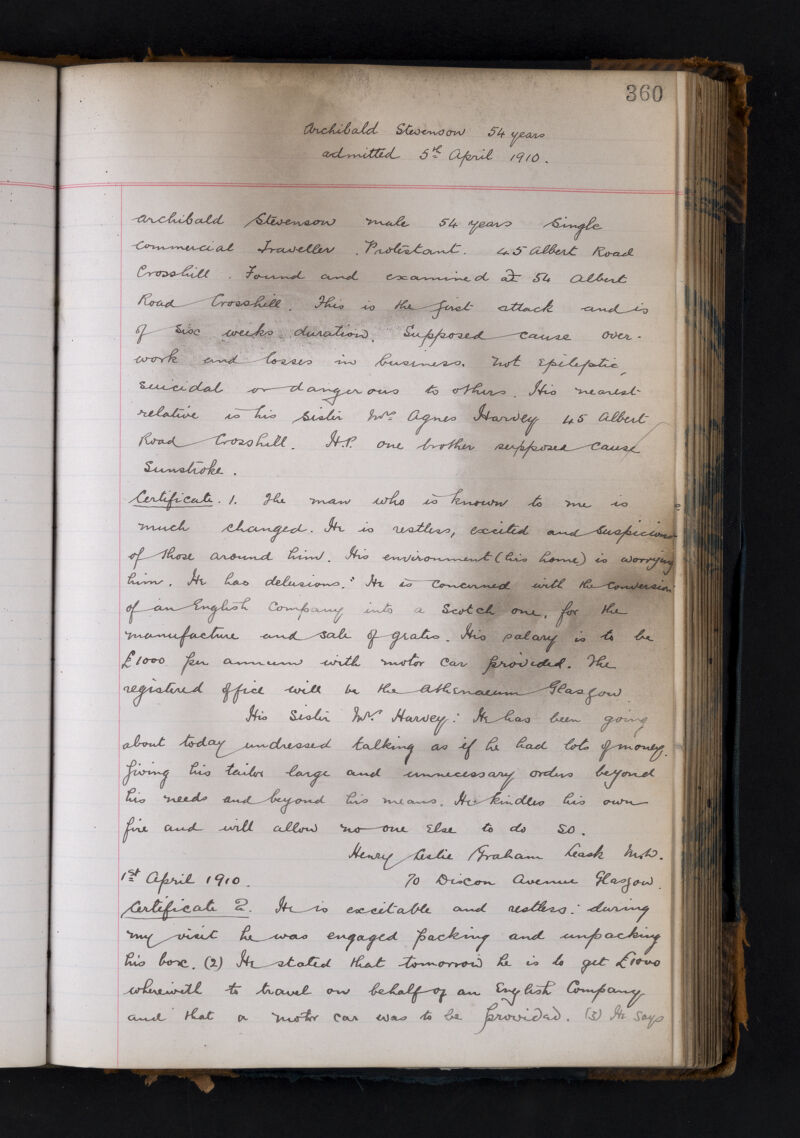 360
Archibald Stevenson 54 years
admitted 5th April 1910.
Archibald Stevenson male 54 years Single
Commercial Traveller. Protestant. 45 Albert Road
Crosshill. Found and examined at 54 Albert
Road Crosshill. This is the first attack and is
of six weeks duration. Supposed cause over-
work and losses in business. Not Epileptic,
suicidal or dangerous to others. His nearest
relative is his sister Mrs Agnes Harvey 45 Albert
Road Crosshill. H.P. one brother supposed cause
Sunstroke.
Certificate. 1. The man who is known to me is
much changed. He is restless, excited and suspicious
of those around him. His environment (his home) is worrying
him. He has delusions: He is concerned with the conversion
of an English Company into a Scotch one, for the
manufacture and sale of grates. His salary is to be
£1000 per annum with motor car provided. The
registered office will be the Athenaeum Glasgow
His Sister Mrs Harvey: He has been going
about today undressed talking as if he had lots of money.
Giving his tailor large and unnecessary orders beyond
his needs and beyond his means. He kindles his own
fire and will allow no one else to do so.
Henry Leslie Graham Leask M.B.
1st April 1910. 70 Dixon Avenue Glasgow.
Certificate 2. He is excitable and restless: during
my visit he was engaged packing and unpacking
his box. (2) He stated that tomorrow he is to get £1000
wherewith to travel on behalf of an English Company
and that a motor car was to be provided. (3) He says